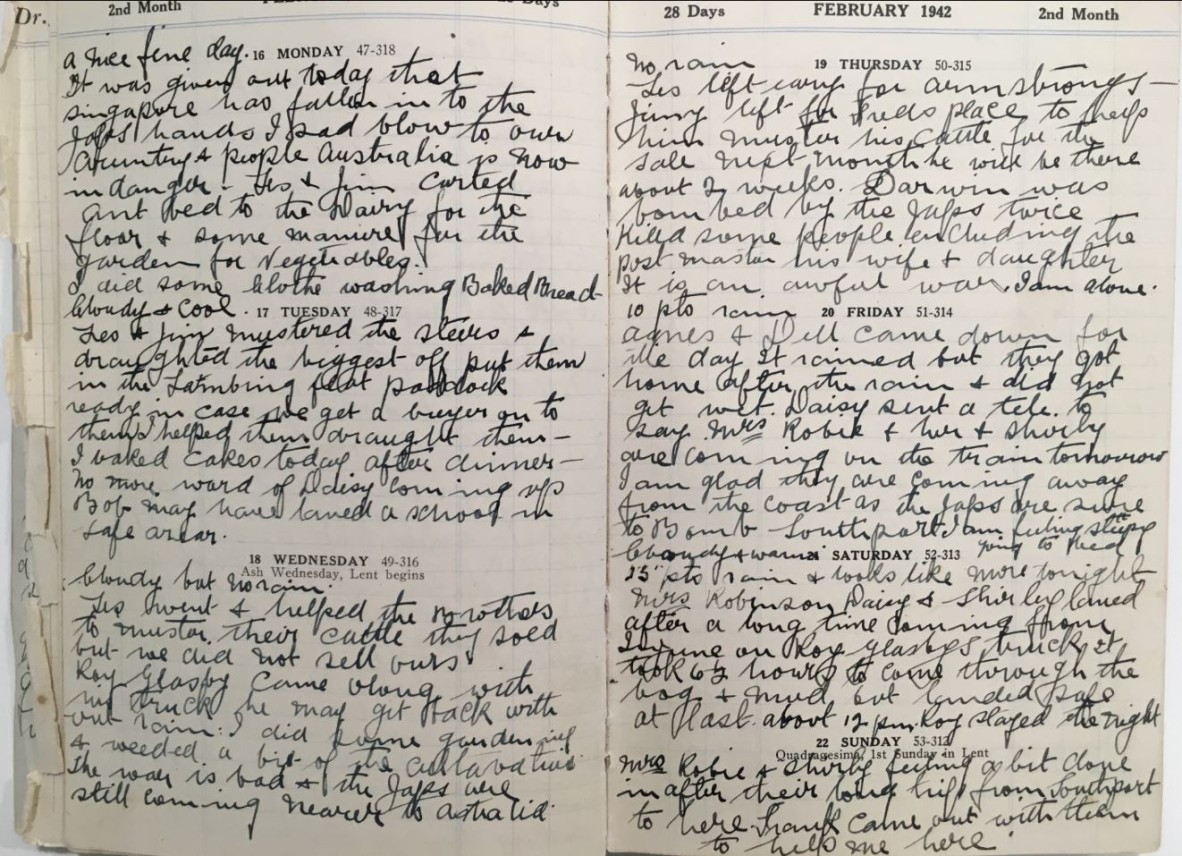 Dr.
2nd Month
Days
a nice fine day. 16 MONDAY 47-318
It was given out today that
singapore has fallen in to the
Japs hands I sad blow to our
Country & people Australia is now
in danger - Les & Jim carted
ant bed to the Dairy for the
floor & some manure for the
garden for Vegetables.
I did some Clothe washing Baked Bread
Cloudy & Cool. 17 TUESDAY 48-317
Les & Jim mustered the steers &
draughted the biggest off put them
in the Lambing flat paddock
ready in case we get a buyer on to
them I helped them draught them -
I baked cakes today after dinner -
no more word of Daisy coming up
Bob may have landed a school in
safe arear.
18 WEDNESDAY 49-316
Ash Wednesday, Lent begins
Cloudy but no rain.
Les went & helped the Brothers
to muster their cattle they sold
but we did not sell ours
Roy Glasby came along with
his truck he may get back with
out rain. I did some gardening
& weeded a bit of the
The war is bad & the Japs are
still coming nearer to astralia
28 Days FEBRUARY 1942 2nd Month
No rain 19 THURSDAY 50-315
Les left early for armstrongs -
Jimy left for Freds place to help
him muster his cattle for the
sale next month he will be there
about 2 weeks. Darwin was
bombed by the Japs twice
Killed some people encluding the
post master his wife & daughter
It is an awful war. I am alone.
10 pts rain 20 FRIDAY 51-314
agnes & Dell came down for
the day It rained but they got
home after the rain & did not
get wet. Daisy sent a tele. to
say Mrs Robie & her & Shirly
are coming on the train tomorrow
I am glad they are coming away
from the coast as the Japs are sure
to Bomb Southport I am feeling sleepy
going to bed
Cloudy & warm 21 SATURDAY 52-313
15 pts rain & looks like more tonight
Mrs Robinson Daisy & Shirley landed
after a long time coming from
on Roy Glasbys truck it
took 6½ hours to come through the
bog & mud but landed safe
at last about 12 pm. Roy stayed the night
22 SUNDAY 53-312
Quadragesima, 1st Sunday in Lent
Mrs Robie & Shirly feeling a bit done
in after their long trip from Southport
to here. Frank came out with them
to help me here